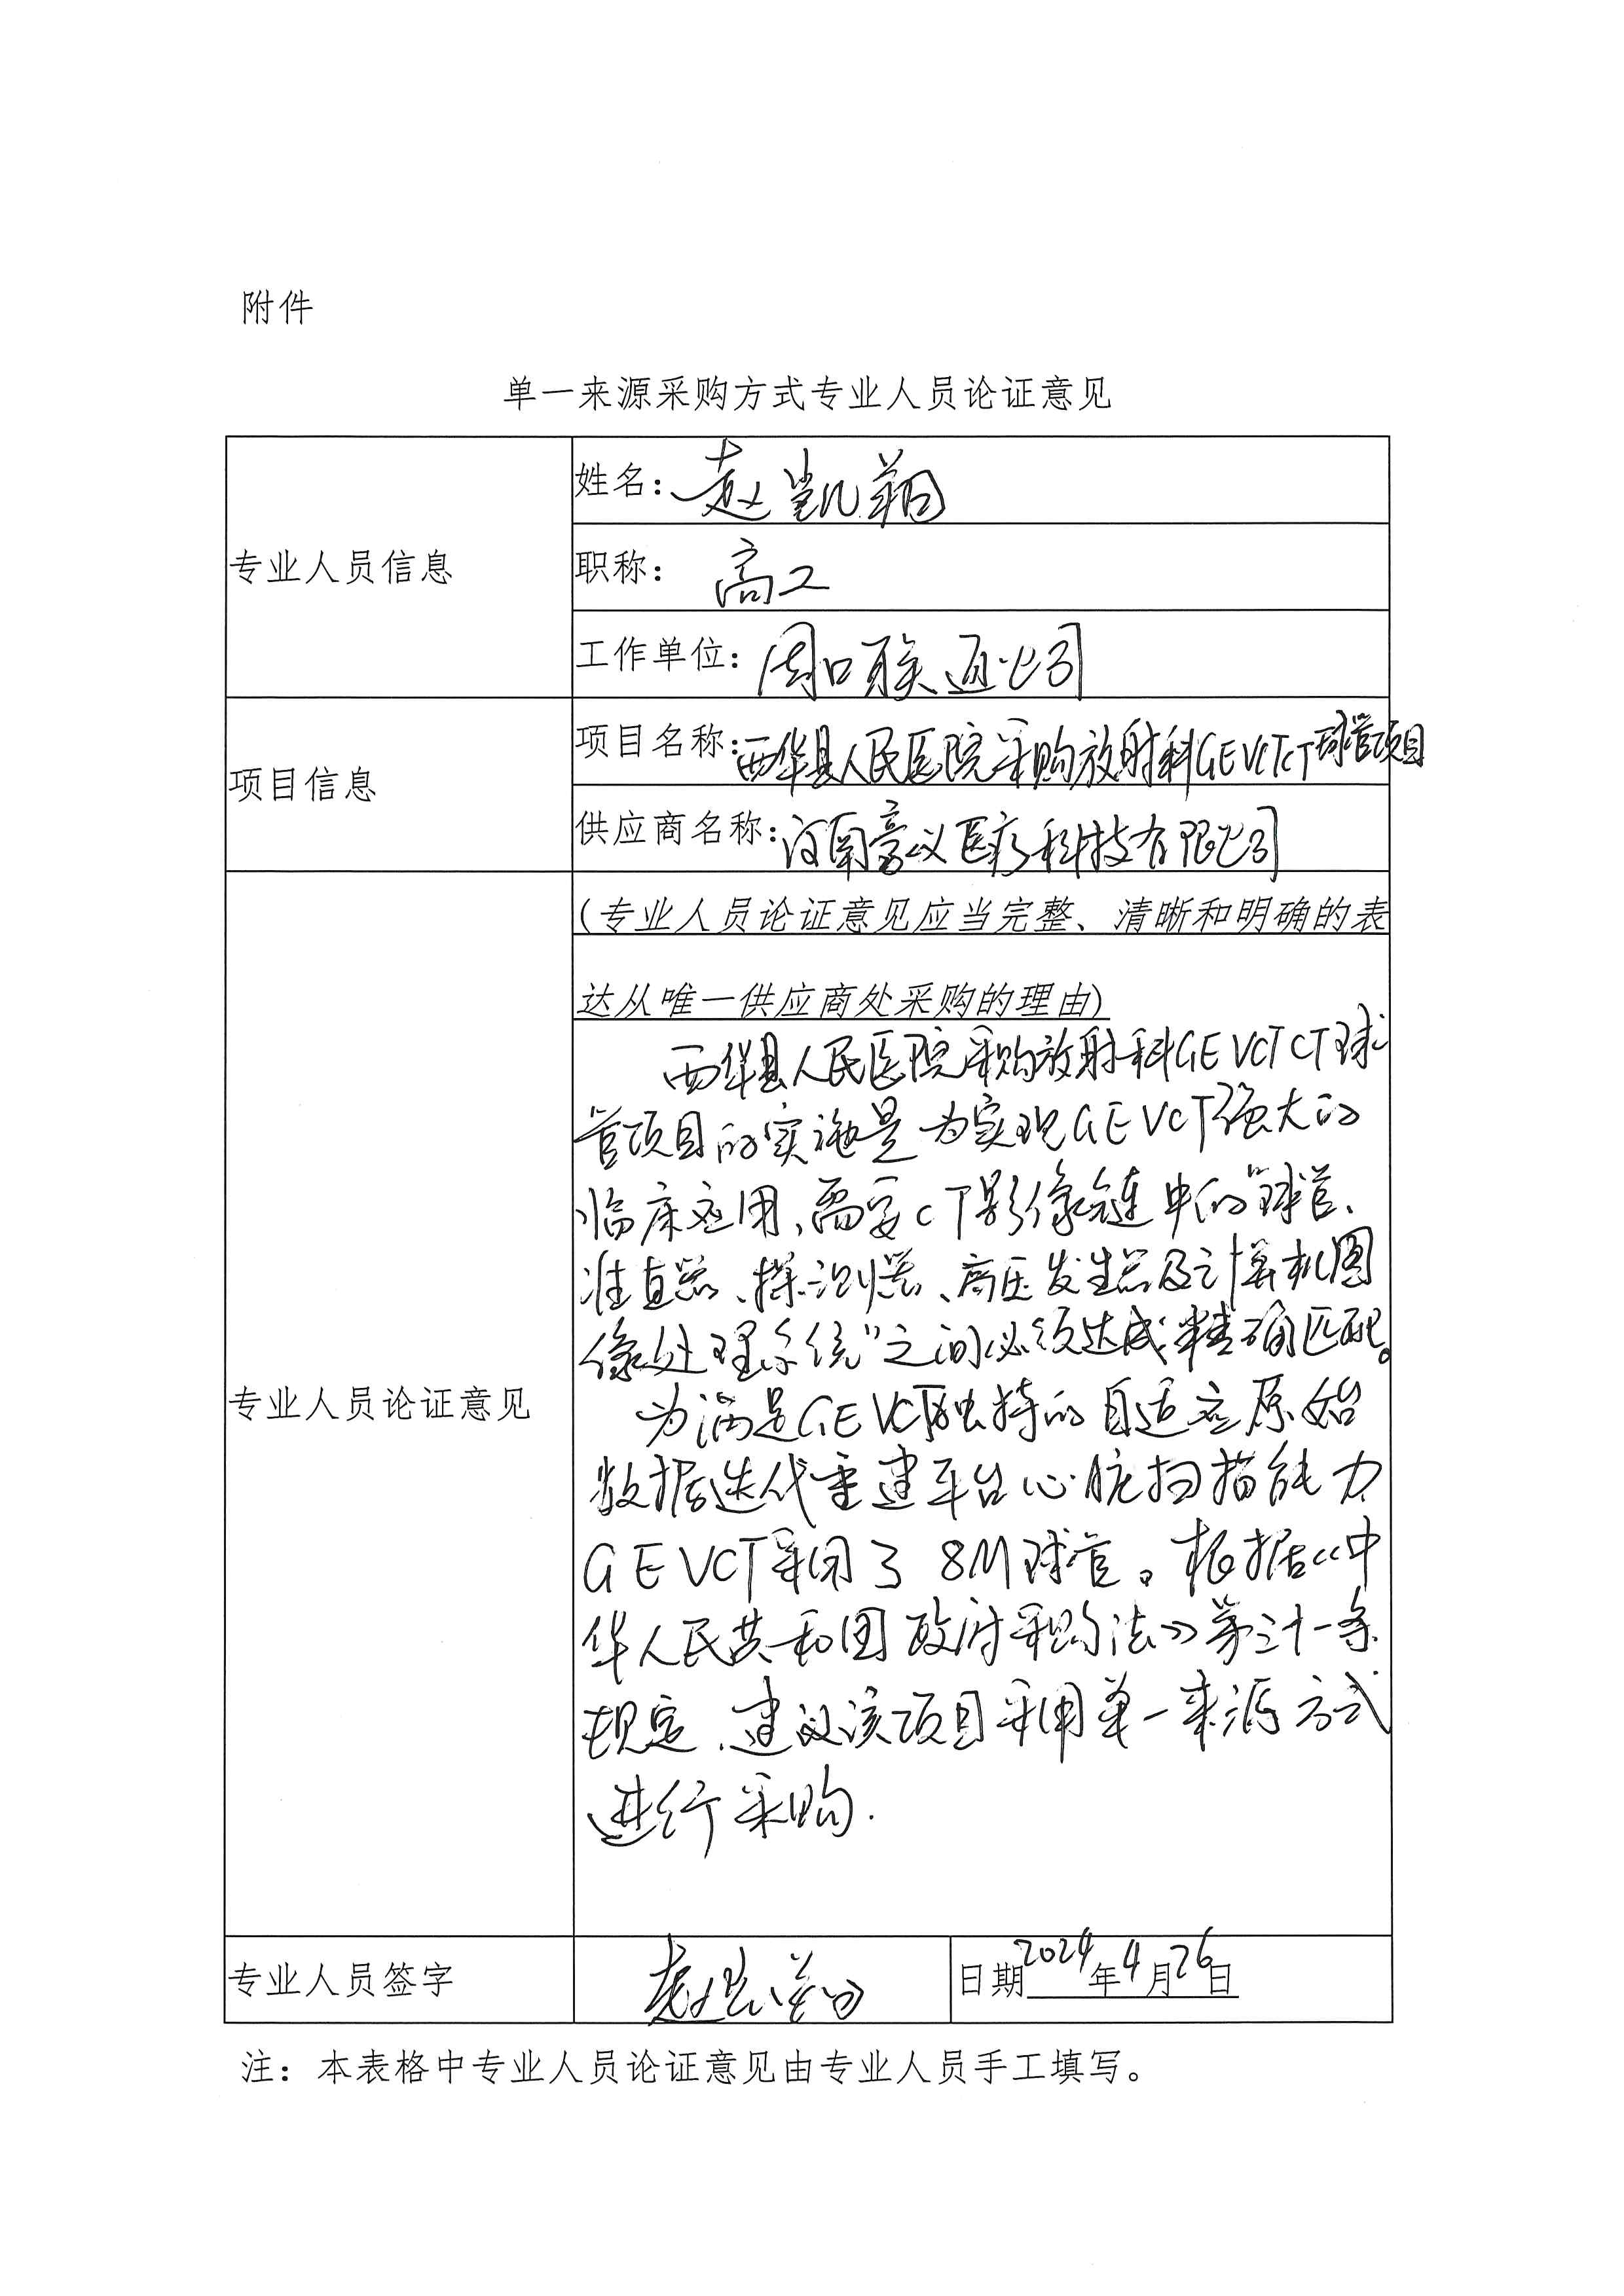 附件
单一来源采购方式专业人员论证意见
专业人员信息
姓名：赵凯翔
职称：高工
工作单位：周口联通公司
项目信息
项目名称：西华县人民医院采购放射科GEVCTCT球管项目
供应商名称：河南豪议医疗科技有限公司
专业人员论证意见
(专业人员论证意见应当完整、清晰和明确的表
达从唯一供应商处采购的理由)
西华县人民医院采购放射科GEVCTCT球
管项目的实施是为实现GEVCT强大的
临床应用、需要CT影像链中的“球管、
准直器、探测器、高压发生器及计算机图
像处理系统”之间必须达成精确匹配。
为满足GEVCT独特的自适应原始
数据迭代重建平台心脏扫描能力
GEVCT采用了8M球管。根据《中
华人民共和国政府采购法》第三十一条
规定、建议该项目采用单一来源方式
进行采购.
专业人员签字
赵凯翔
日期2024年4月26日
注：本表格中专业人员论证意见由专业人员手工填写。